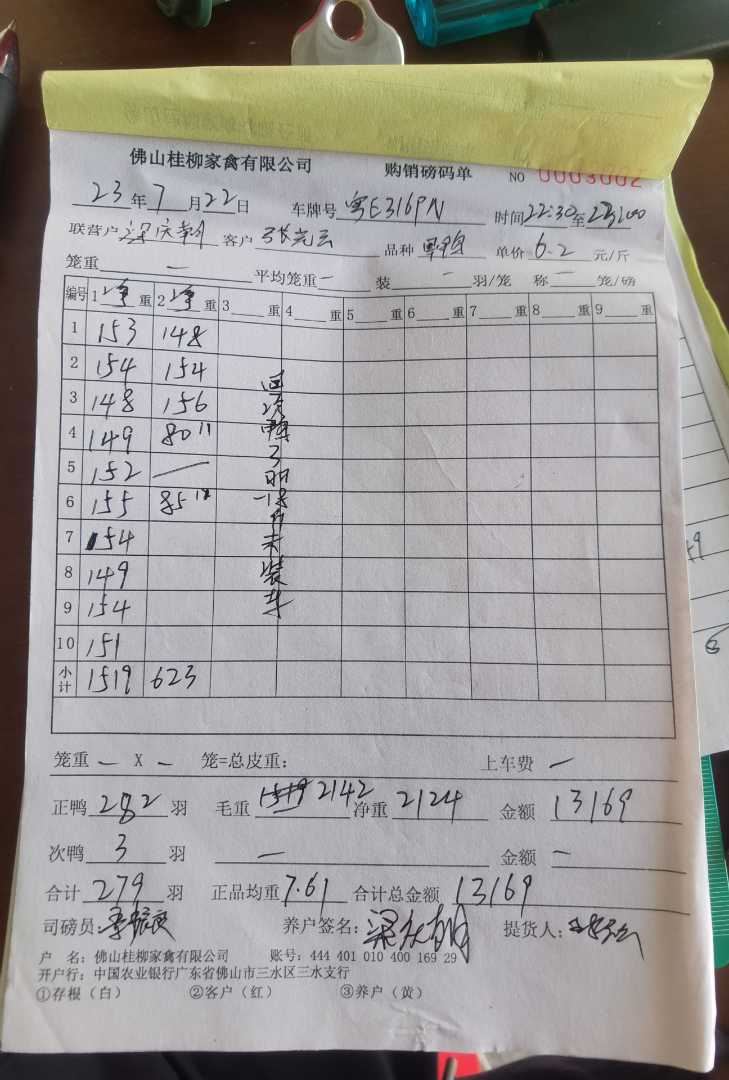 佛山桂柳家禽有限公司 购销磅码单 NO 0003002
23年7月22日 车牌号 粤E316PN 时间22:30至23:00
联营户 客户 张光云 品种 单价 6.2 元/斤
笼重 — 平均笼重 — 装 — 羽/笼 称 — 笼/磅
编号 1 净 重 2 净 重 3 重 4 重 5 重 6 重 7 重 8 重 9 重
1 153 148
2 154 154
3 148 156
4 149 80 11
5 152 —
6 155 85
7 154
8 149
9 154
10 151
小计 1519 623
次鸭3
未装车
笼重 — X — 笼=总皮重: 上车费 —
正鸭 282 羽 毛重 1519 2142 净重 2124 金额 13169
次鸭 3 羽 — 金额 —
合计 279 羽 正品均重 7.61 合计总金额 13169
司磅员: 养户签名: 提货人:
户 名: 佛山桂柳家禽有限公司 账号: 444 401 010 400 169 29
开户行: 中国农业银行广东省佛山市三水区三水支行
①存根（白） ②客户（红） ③养户（黄）